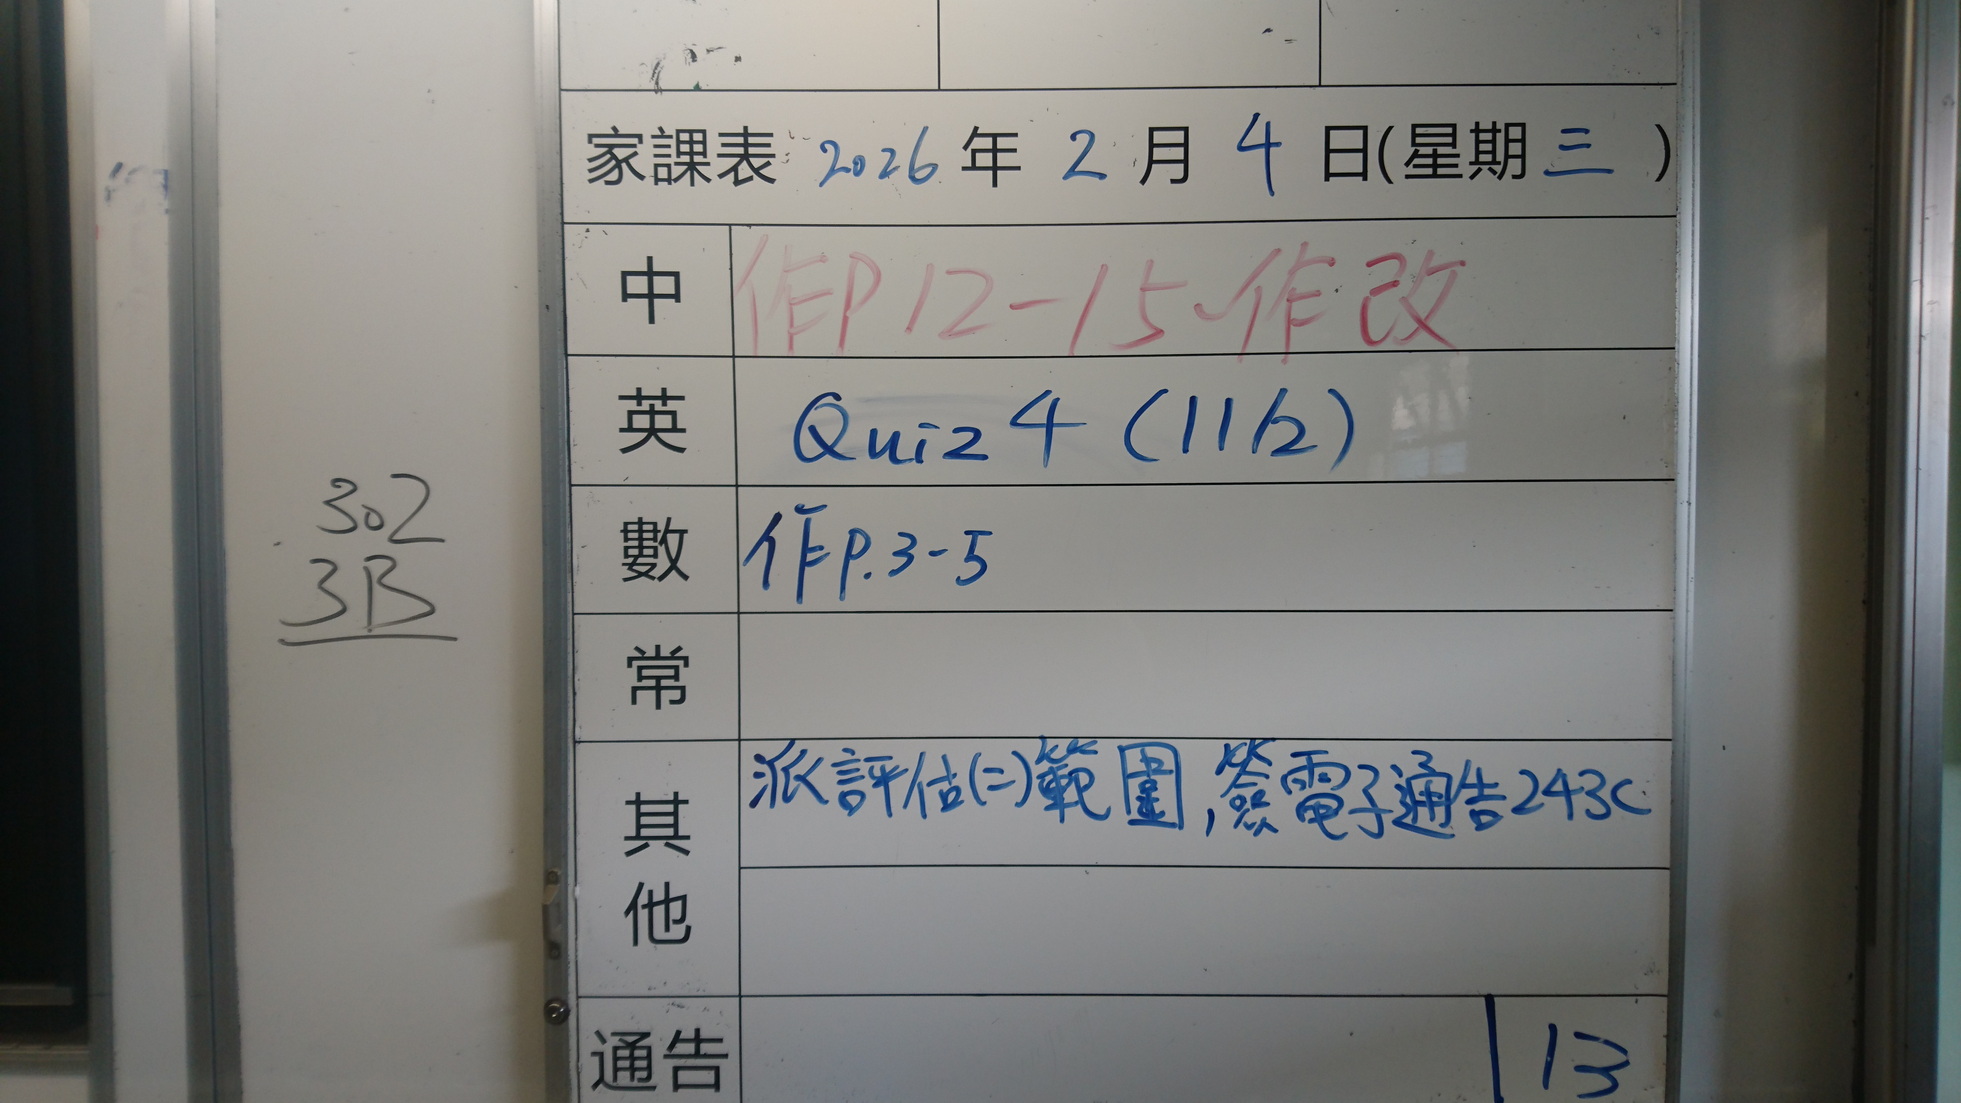 302
3B
家課表 2026 年 2 月 4 日(星期 三 )
中 作P12-15、作改
英 Quiz 4 (11/2)
數 作P.3-5
常
其他 派評估(二)範圍,簽電子通告243C
通告 13